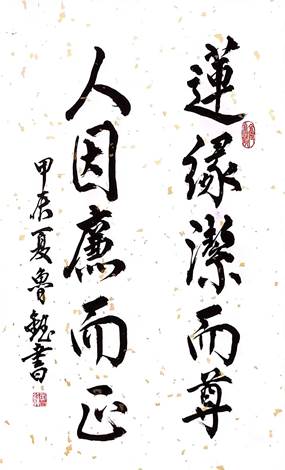 蓮緣潔而尊
人因廉而正
甲辰夏魯書